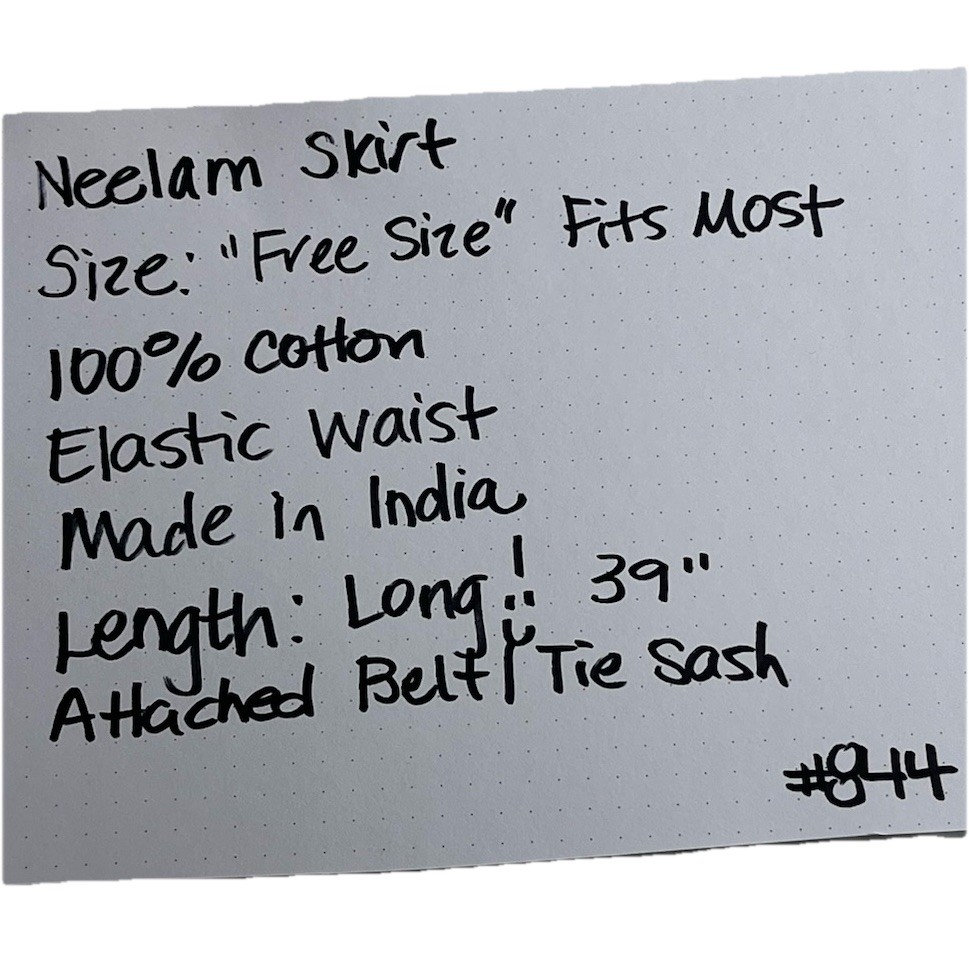 Neelam Skirt
Size: "Free Size" Fits Most
100% Cotton
Elastic Waist
Made in India
Length: Long!! 39"
Attached Belt/Tie Sash
#844